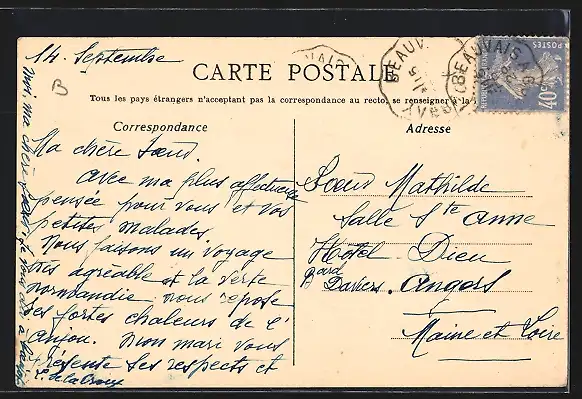 14 Septembre
B
BEAUVAIS
BEAUVAIS A
POSTES
40c
CARTE POSTALE
Tous les pays étrangers n'acceptant pas la correspondance au recto, se renseigner à la
Correspondance
Adresse
Ma chère Soeur.
Avec ma plus affectueuse
pensée pour vous et vos
petites malades.
Nous faisons un voyage
très agréable et la verte
normandie nous repose
des fortes chaleurs de l'
anjou. Mon mari vous
présente ses respects et
Soeur Mathilde
Salle Ste Anne
Hôtel Dieu
Bard Daviers. Angers
Maine et Loire